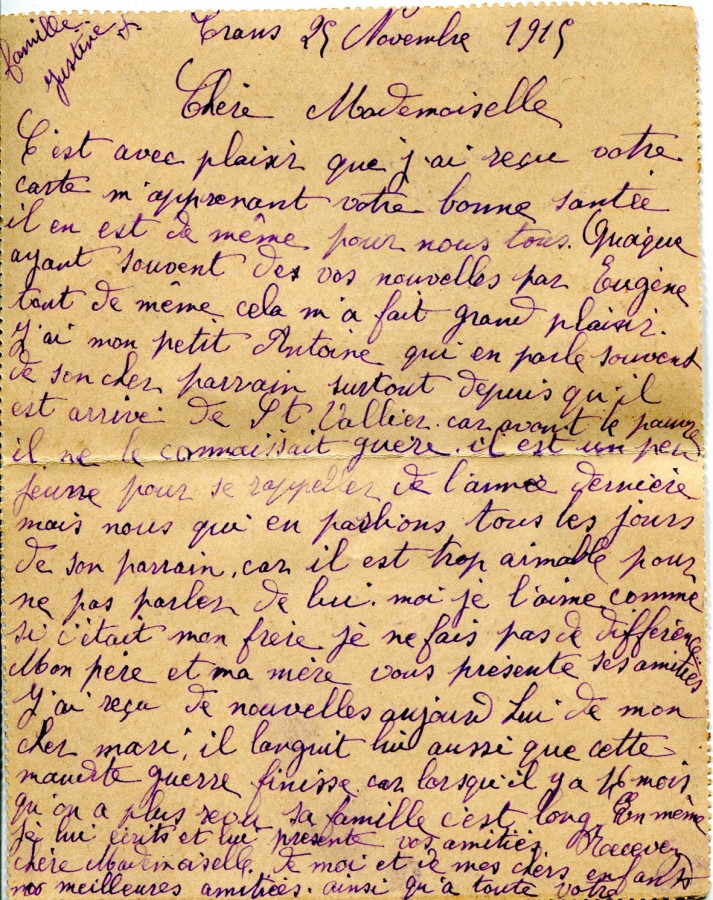 Trans 25 Novembre 1915
Chère Mademoiselle
C'est avec plaisir que j'ai reçu votre
carte m'apprenant votre bonne santée
il en est de même pour nous tous. Quoique
ayant souvent des vos nouvelles par Eugène
tout de même cela m'a fait grand plaisir.
J'ai mon petit Antoine qui en parle souvent
de son cher parrain surtout depuis qu'il
est arrivé de St Vallier car avant le pauvre
il ne le connaissait guère. il est un peu
jeune pour se rappeller de l'année dernière
mais nous qui en parlions tous les jours
de son parrain, car il est trop aimable pour
ne pas parler de lui. moi je l'aime comme
si c'était mon frère je ne fais pas de différence
Mon père et ma mère vous présente ses amitiés
J'ai reçu de nouvelles aujourd hui de mon
cher mari, il languit lui aussi que cette
maudite guerre finisse car lorsqu'il y a 16 mois
qu'on a plus reçu sa famille c'est long. En même
je lui écrits et lui présente vos amitiés. Recevez
chère Mademoiselle. de moi et de mes chers enfants
nos meilleures amitiés. ainsi qu'a toute votre
famille
Justine